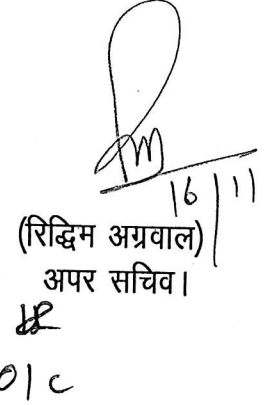 16/11
(रिद्धिम अग्रवाल)
अपर सचिव।
O/C